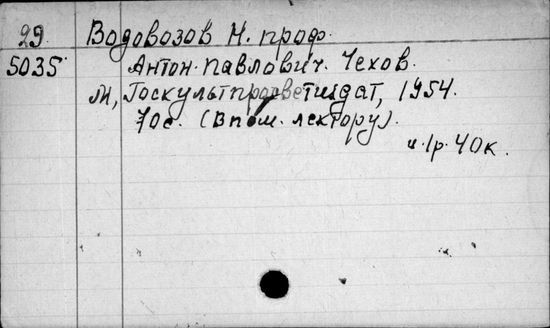 29 Водовозов Н. проф.
5035 Антон Павлович Чехов.
М, Госкультпросветиздат, 1954.
70с. (В пом. лектору).
ц. 1р. 40к.